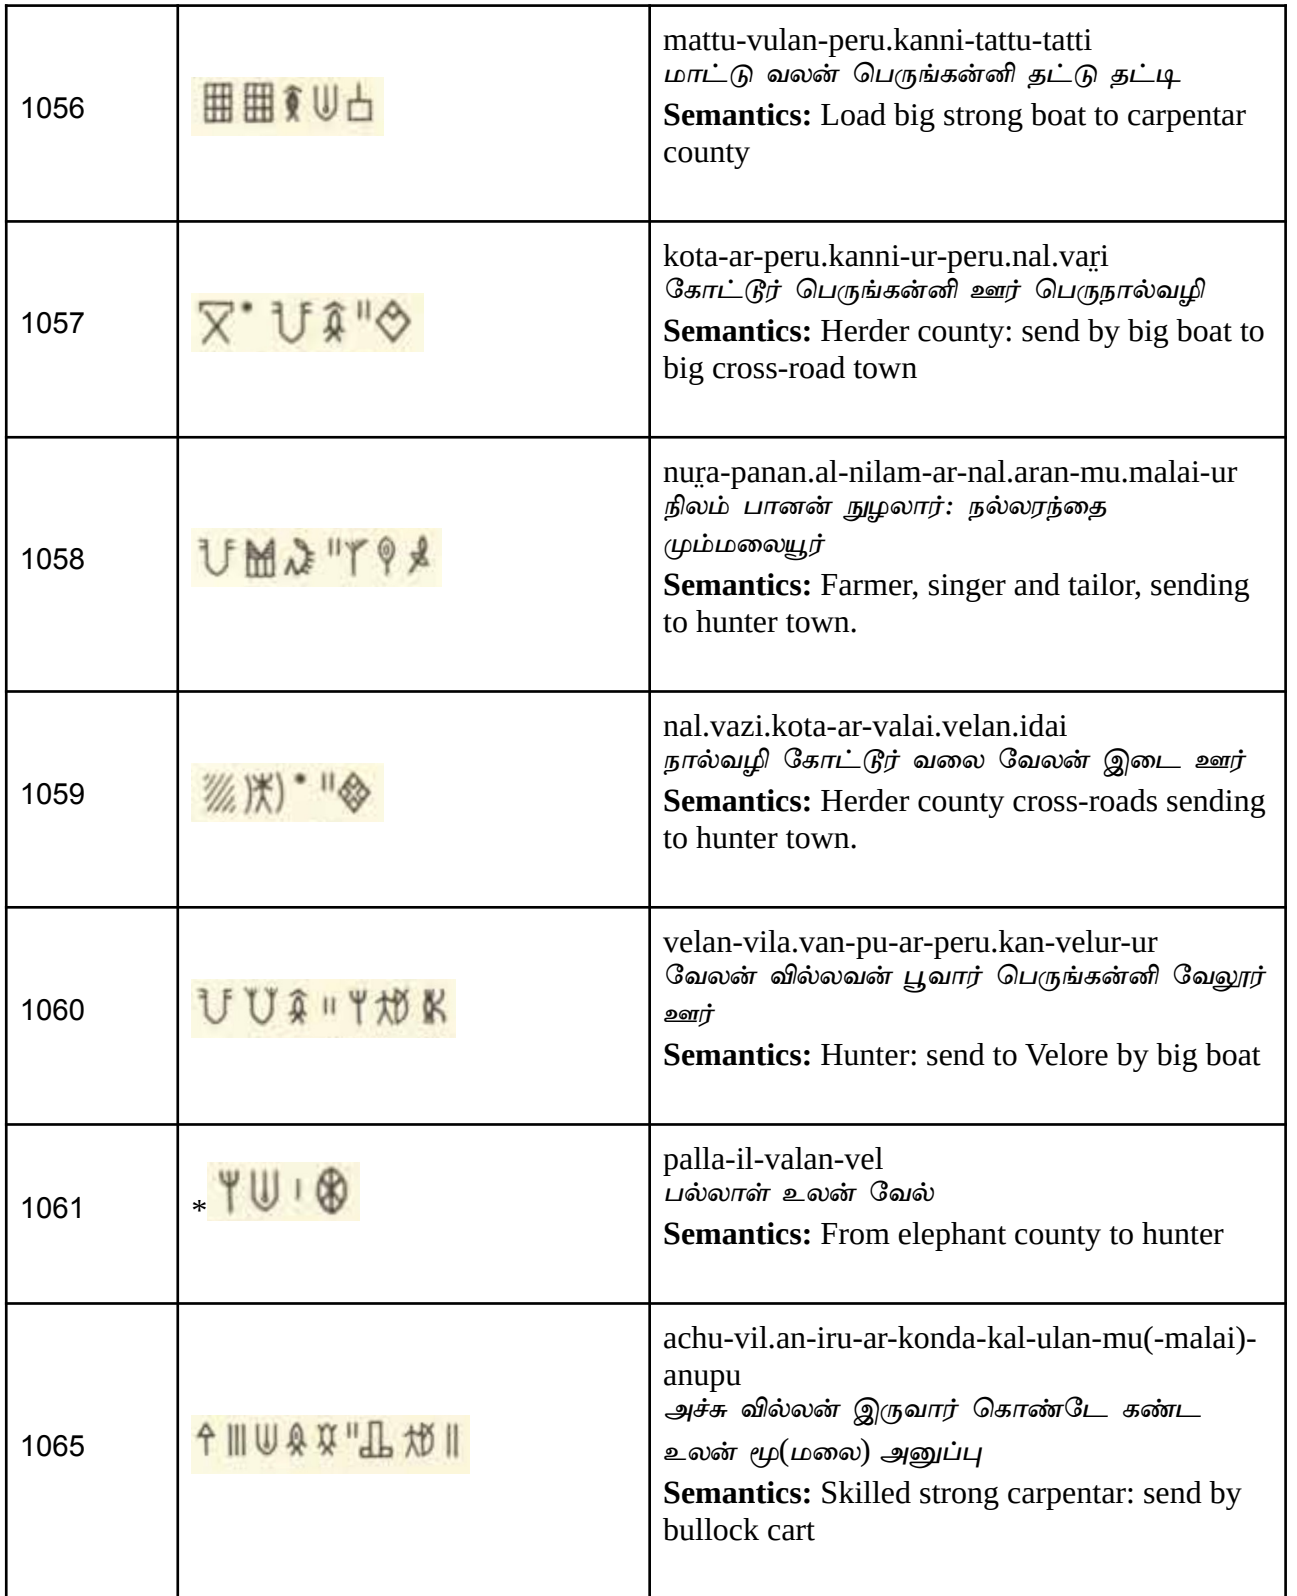 1056
mattu-vulan-peru.kanni-tattu-tatti
மாட்டு வலன் பெருங்கன்னி தட்டு தட்டி
Semantics: Load big strong boat to carpentar
county
1057
kota-ar-peru.kanni-ur-peru.nal.vaṛi
கோட்டூர் பெருங்கன்னி ஊர் பெருநால்வழி
Semantics: Herder county: send by big boat to
big cross-road town
1058
nuṛa-panan.al-nilam-ar-nal.aran-mu.malai-ur
நிலம் பானன் நுழலார்: நல்லரந்தை
மும்மலையூர்
Semantics: Farmer, singer and tailor, sending
to hunter town.
1059
nal.vazi.kota-ar-valai.velan.idai
நால்வழி கோட்டூர் வலை வேலன் இடை ஊர்
Semantics: Herder county cross-roads sending
to hunter town.
1060
velan-vila.van-pu-ar-peru.kan-velur-ur
வேலன் வில்லவன் பூவார் பெருங்கன்னி வேலூர்
ஊர்
Semantics: Hunter: send to Velore by big boat
1061
*
palla-il-valan-vel
பல்லாள் உலன் வேல்
Semantics: From elephant county to hunter
1065
achu-vil.an-iru-ar-konda-kal-ulan-mu(-malai)-
anupu
அச்சு வில்லன் இருவார் கொண்டே கண்ட
உலன் மூ(மலை) அனுப்பு
Semantics: Skilled strong carpentar: send by
bullock cart